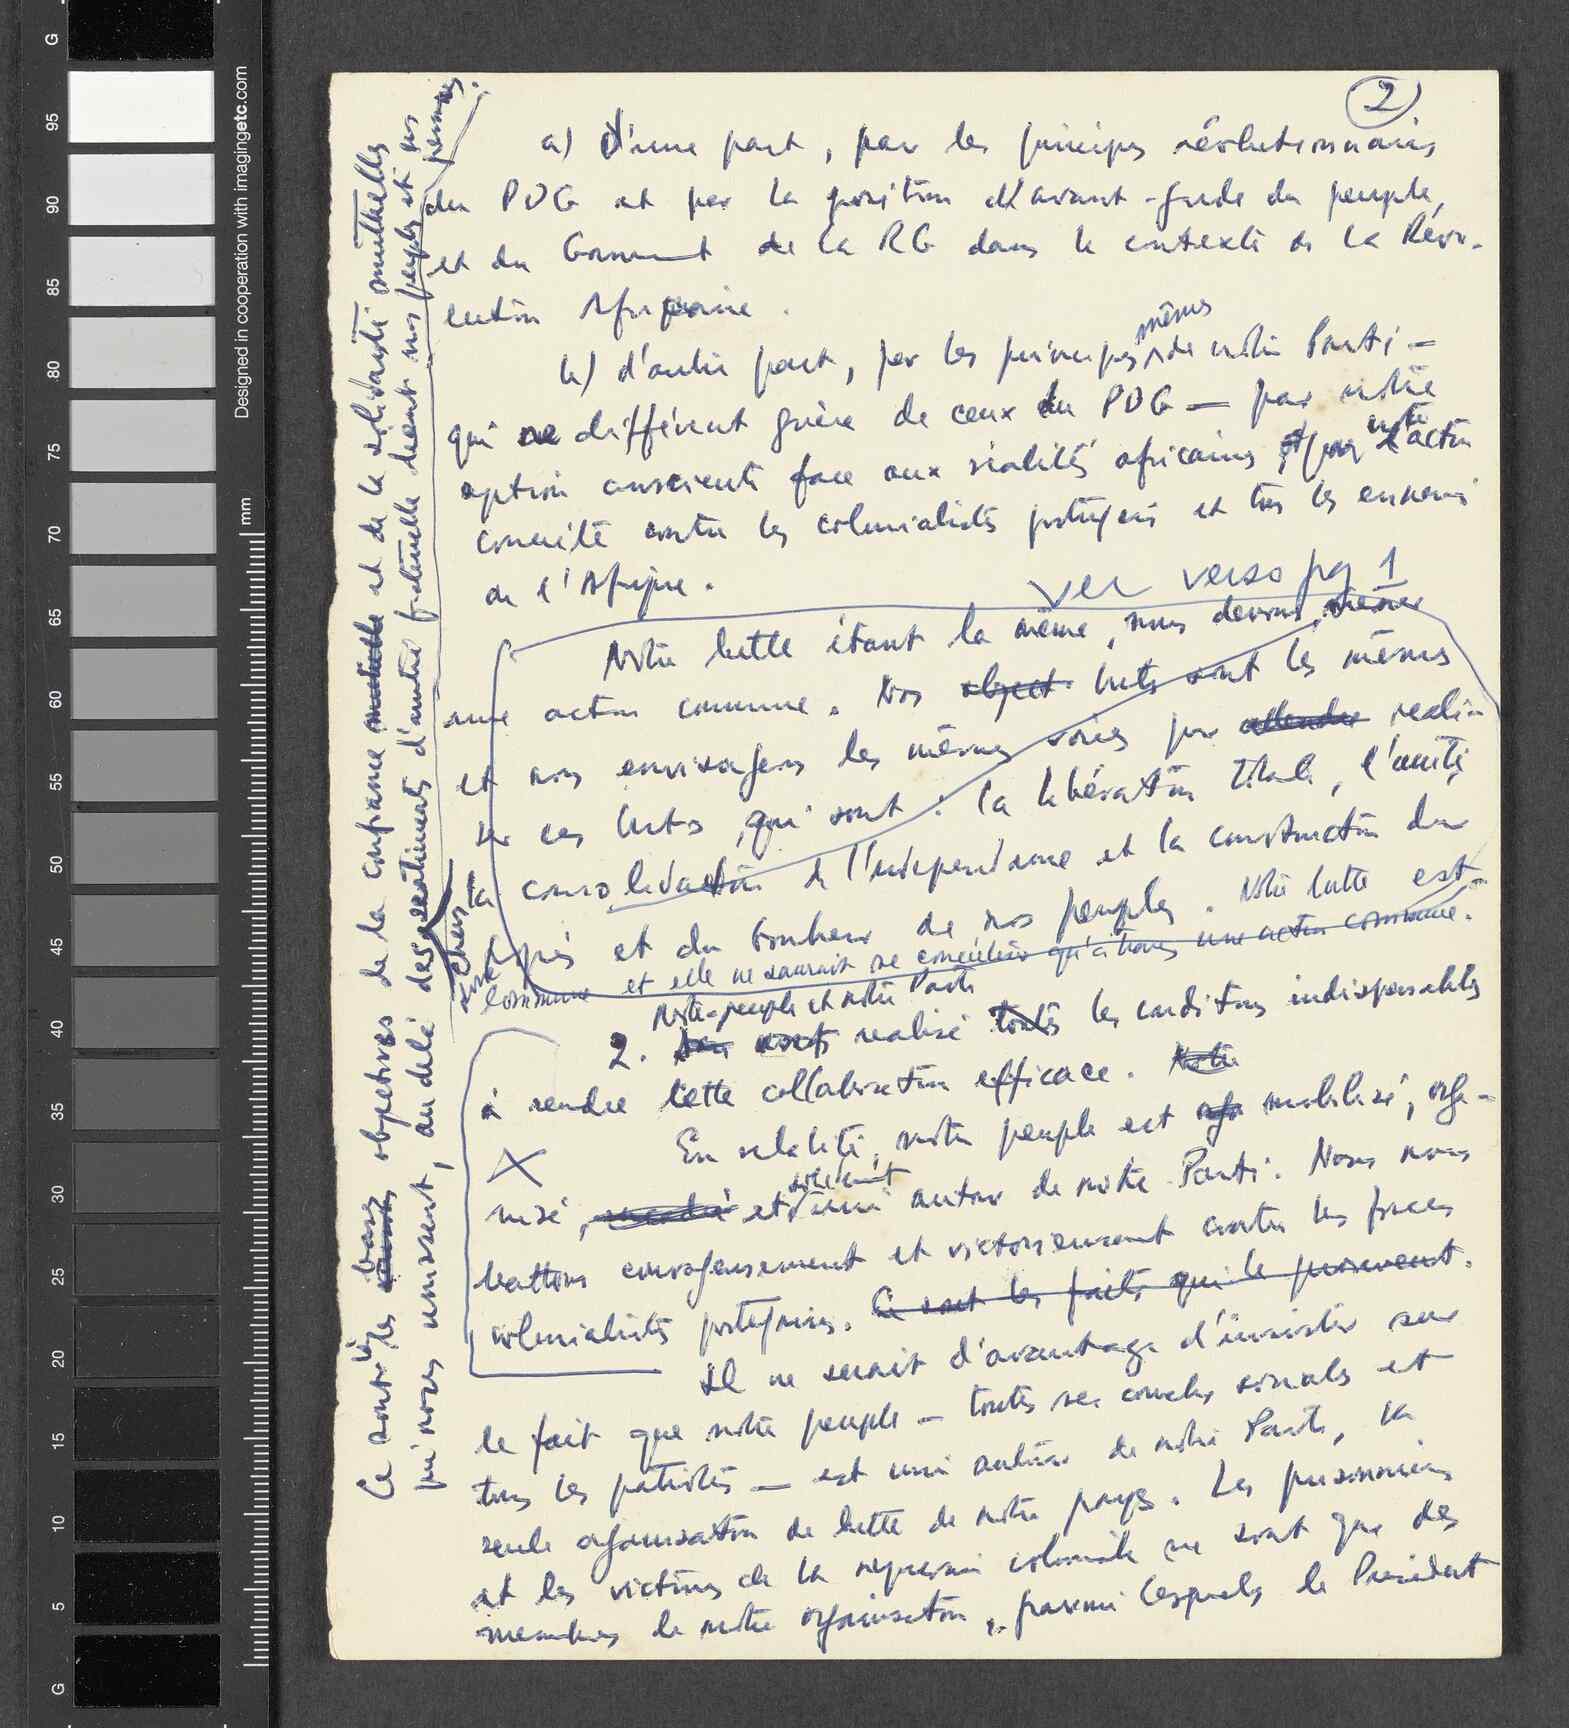 2
a) d'une part, par les principes révolutionnaires
du PDG et par la position d'avant-garde du peuple,
et du Gouvernement de la RG dans le contexte de la Révo-
lution Africaine.
b) d'autre part, par les principes mêmes de notre Parti —
qui ne diffèrent guère de ceux du PDG — par notre
option consciente face aux réalités africaines, et par notre action
concrète contre les colonialistes portugais et tous les ennemis
de l'Afrique.
ver verso pg 1
Notre lutte étant la même, nous devons mener
une action commune. Nos object. buts sont les mêmes
et nous envisageons les mêmes voies pour attendre réali-
ser ces buts, qui sont : la libération totale, l'unité,
la consolidation de l'indépendance et la construction du
progrès et du bonheur de nos peuples. Notre lutte est
commune et elle ne saurait se concrétiser qu'à travers une action commune.
Notre peuple et notre Parti
2. ont réalisé toutes les conditions indispensables
à rendre cette collaboration efficace. Notre
En réalité, notre peuple est mobilisé, orga-
nisé, et solidement uni autour de notre Parti. Nous nous
battons courageusement et victorieusement contre les forces
colonialistes portugaises. Ce sont les faits qui le prouvent.
Il ne serait d'avantage d'insister sur
le fait que notre peuple — toutes ses couches sociales et
tous les patriotes — est uni autour de notre Parti, la
seule organisation de lutte de notre pays. Les prisonniers
et les victimes de la répression coloniale ne sont que des
membres de notre organisation, parmi lesquels le Président
Ce sont là les bases objectives de la confiance mutuelle et de la solidarité mutuelles
qui nous unissent, au delà des sentiments d'amitié fraternelle liant nos peuples et nos
chers
Designed in cooperation with imagingetc.com
mm
G
95
90
85
80
75
70
65
60
55
50
45
40
35
30
25
20
15
10
5
G